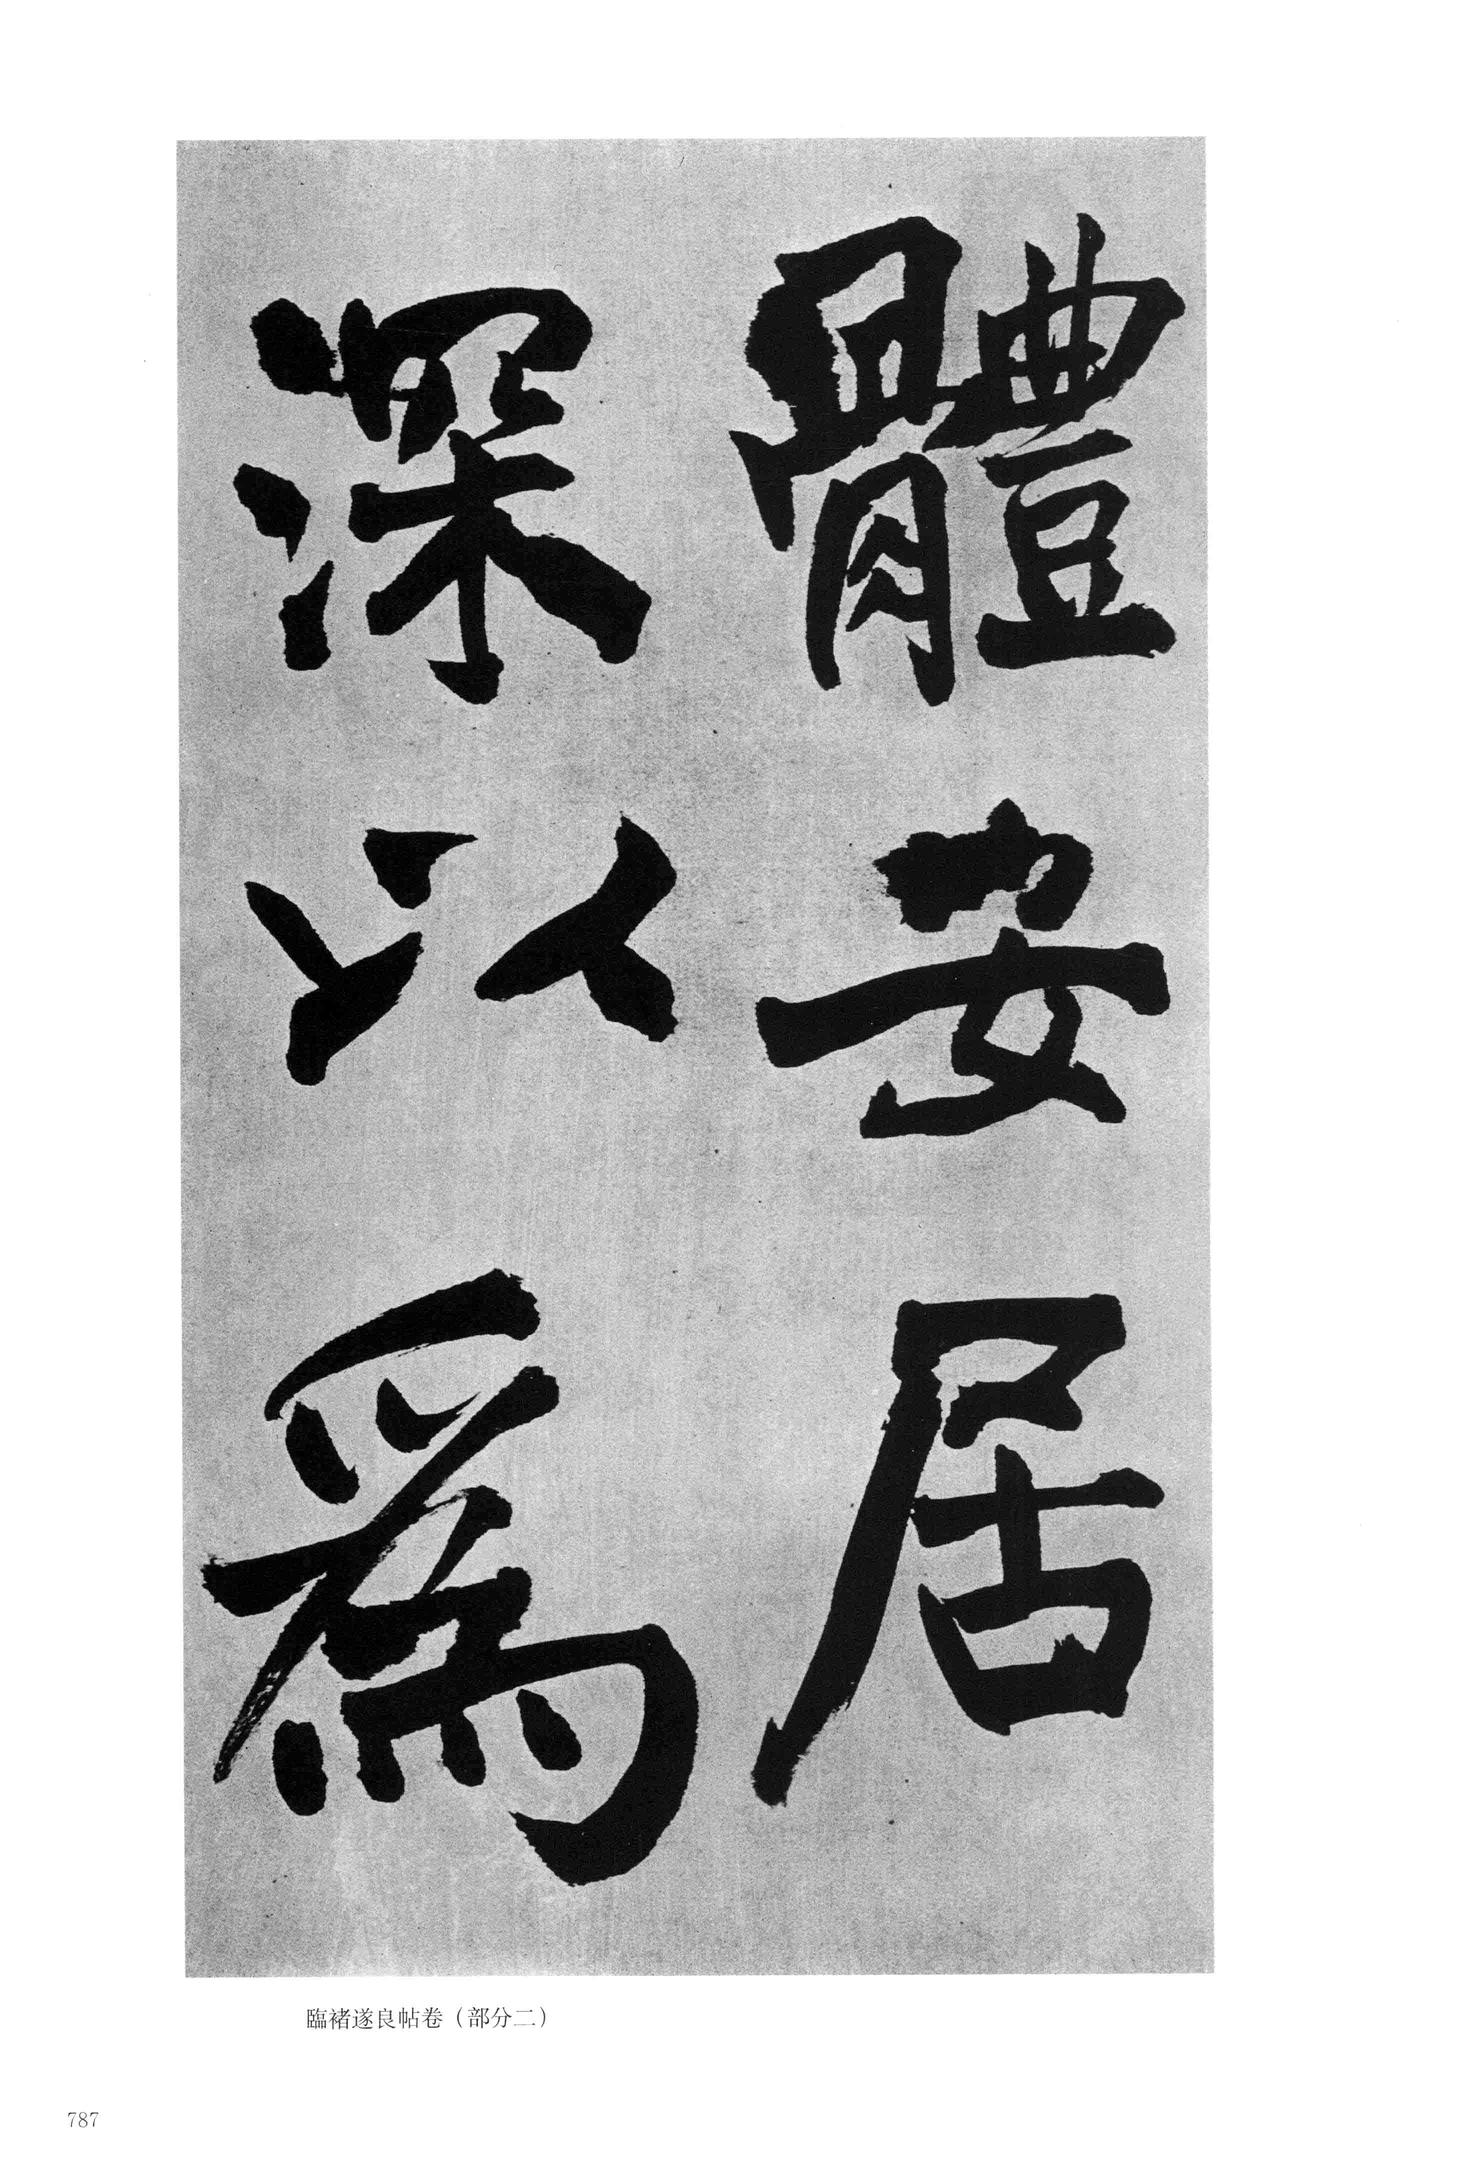 體安居
深以為
臨褚遂良帖卷（部分二）
787